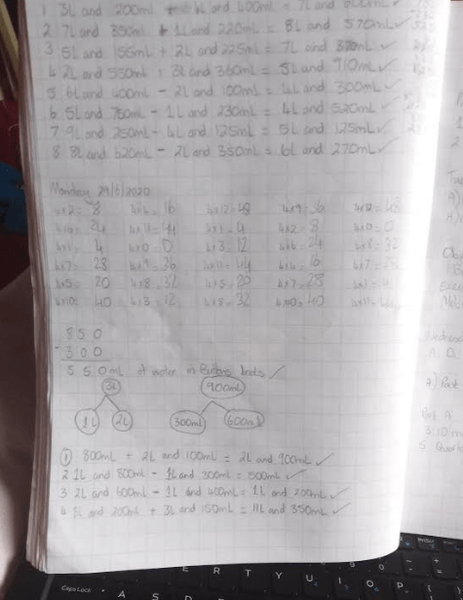 1 3L and 200mL + 4L and 400mL = 7L and 600mL
2 7L and 350mL + 1L and 220mL = 8L and 570mL
3 5L and 155mL + 2L and 225mL = 7L and 380mL
4 2L and 550mL + 3L and 360mL = 5L and 910mL
5 6L and 400mL - 2L and 100mL = 4L and 300mL
6 5L and 750mL - 1L and 230mL = 4L and 520mL
7 9L and 250mL - 4L and 125mL = 5L and 125mL
8 8L and 620mL - 2L and 350mL = 6L and 270mL
Monday 29/6/2020
4x2= 8 4x4= 16 4x12=48 4x9= 36 4x12=48
4x6= 24 4x11=44 4x1= 4 4x2= 8 4x0= 0
4x1= 4 4x0= 0 4x3= 12 4x6= 24 4x8= 32
4x7= 28 4x9= 36 4x11= 44 4x4= 16 4x7= 28
4x5= 20 4x8= 32 4x5= 20 4x7= 28 4x1= 4
4x10= 40 4x3= 12 4x8= 32 4x10= 40 4x11= 44
850
- 300
550mL of water in boots
3L 900mL
1L 2L 300mL 600mL
1 800mL + 2L and 100mL = 2L and 900mL
2 1L and 800mL - 1L and 300mL = 500mL
3 2L and 600mL - 1L and 400mL = 1L and 200mL
4 8L and 200mL + 3L and 150mL = 11L and 350mL
CapsLock
E R T Y U I O P
A S D